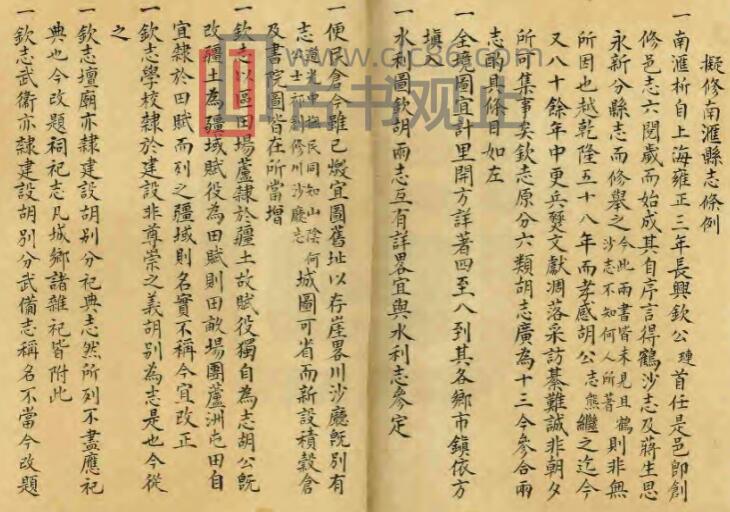 擬修南滙縣志條例
一南滙析自上海雍正三年長興欽公璉首任是邑即創
修邑志六閱歲而始成其自序言得鶴沙志及蔣生思
永新分縣志而修舉之今此兩書皆未見且鶴沙志不知何人所著則非無
所因也越乾隆五十八年而孝感胡公志熊繼之迄今
又八十餘年中更兵燹文獻凋落采訪綦難誠非朝夕
所可集事矣欽志原分六類胡志廣為十三今參合兩
志酌具條目如左
一全境圖宜計里開方詳著四至八到其各鄉市鎮依方
填入
一水利圖欽胡兩志互有詳畧宜與水利志參定
一便民倉今雖已燬宜圖舊址以存崖畧川沙廳旣別有
志道光中撫民同知山陰何士祁創修川沙廳志城圖可省而新設積穀倉
及書院圖皆在所當增
一欽志以區田場蘆隸於疆土故賦役獨自為志胡公旣
改疆土為疆域賦役為田賦則田畝場團蘆洲屯田自
宜隸於田賦而列之疆域則名實不稱今宜改正
一欽志學校隸於建設非尊崇之義胡別為志是也今從
之
一欽志壇廟亦隸建設胡別分祀典志然所列不盡應祀
典也今改題祠祀志凡城鄉諸雜祀皆附此
一欽志武衛亦隸建設胡別分武備志稱名不當今改題
古书观止